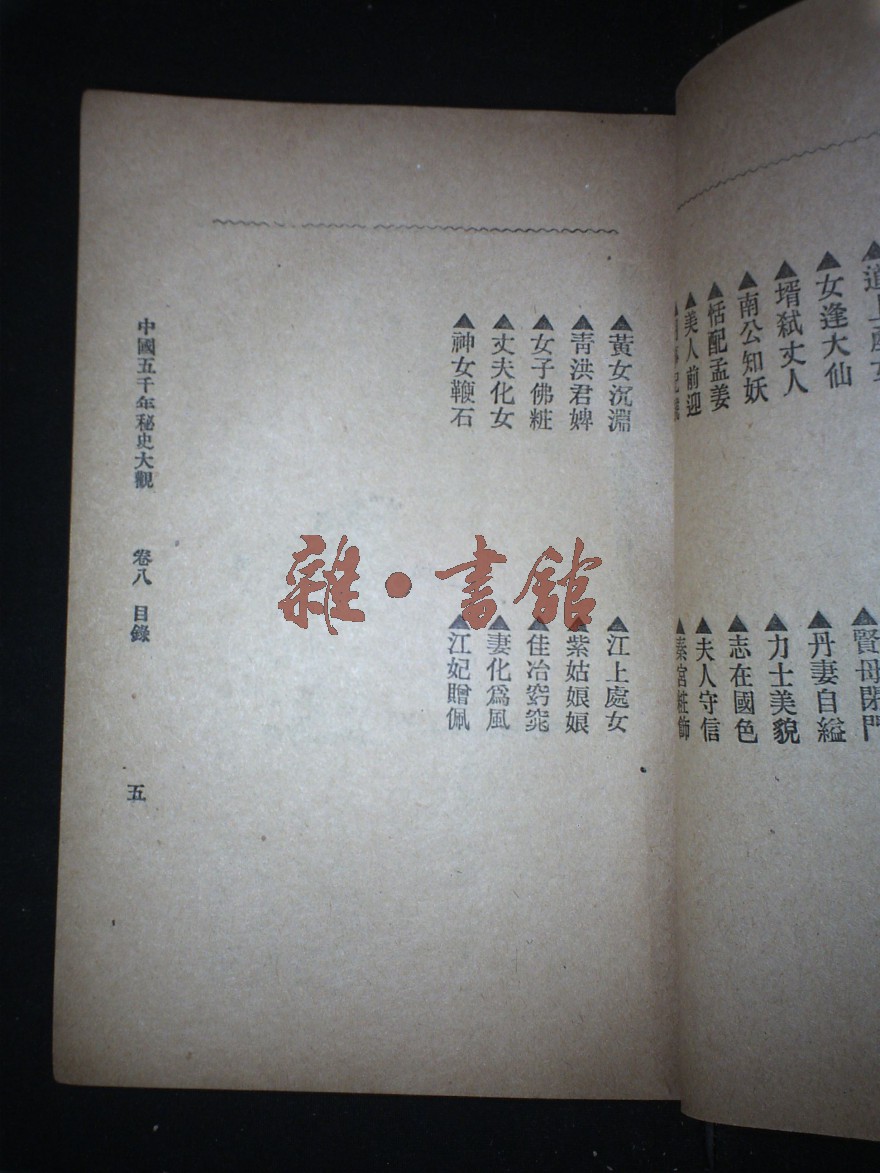 女逢大仙
壻弒丈人
南公知妖
恬配孟姜
美人前迎
賢母閉門
丹妻自縊
力士美貌
志在國色
夫人守信
秦宮粧飾
▲黃女沉淵
▲青洪君婢
▲女子佛粧
▲丈夫化女
▲神女鞭石
▲江上處女
▲紫姑娘娘
▲佳冶窈窕
▲妻化爲風
▲江妃贈佩
中國五千年秘史大觀 卷八 目錄
五
雜·書館